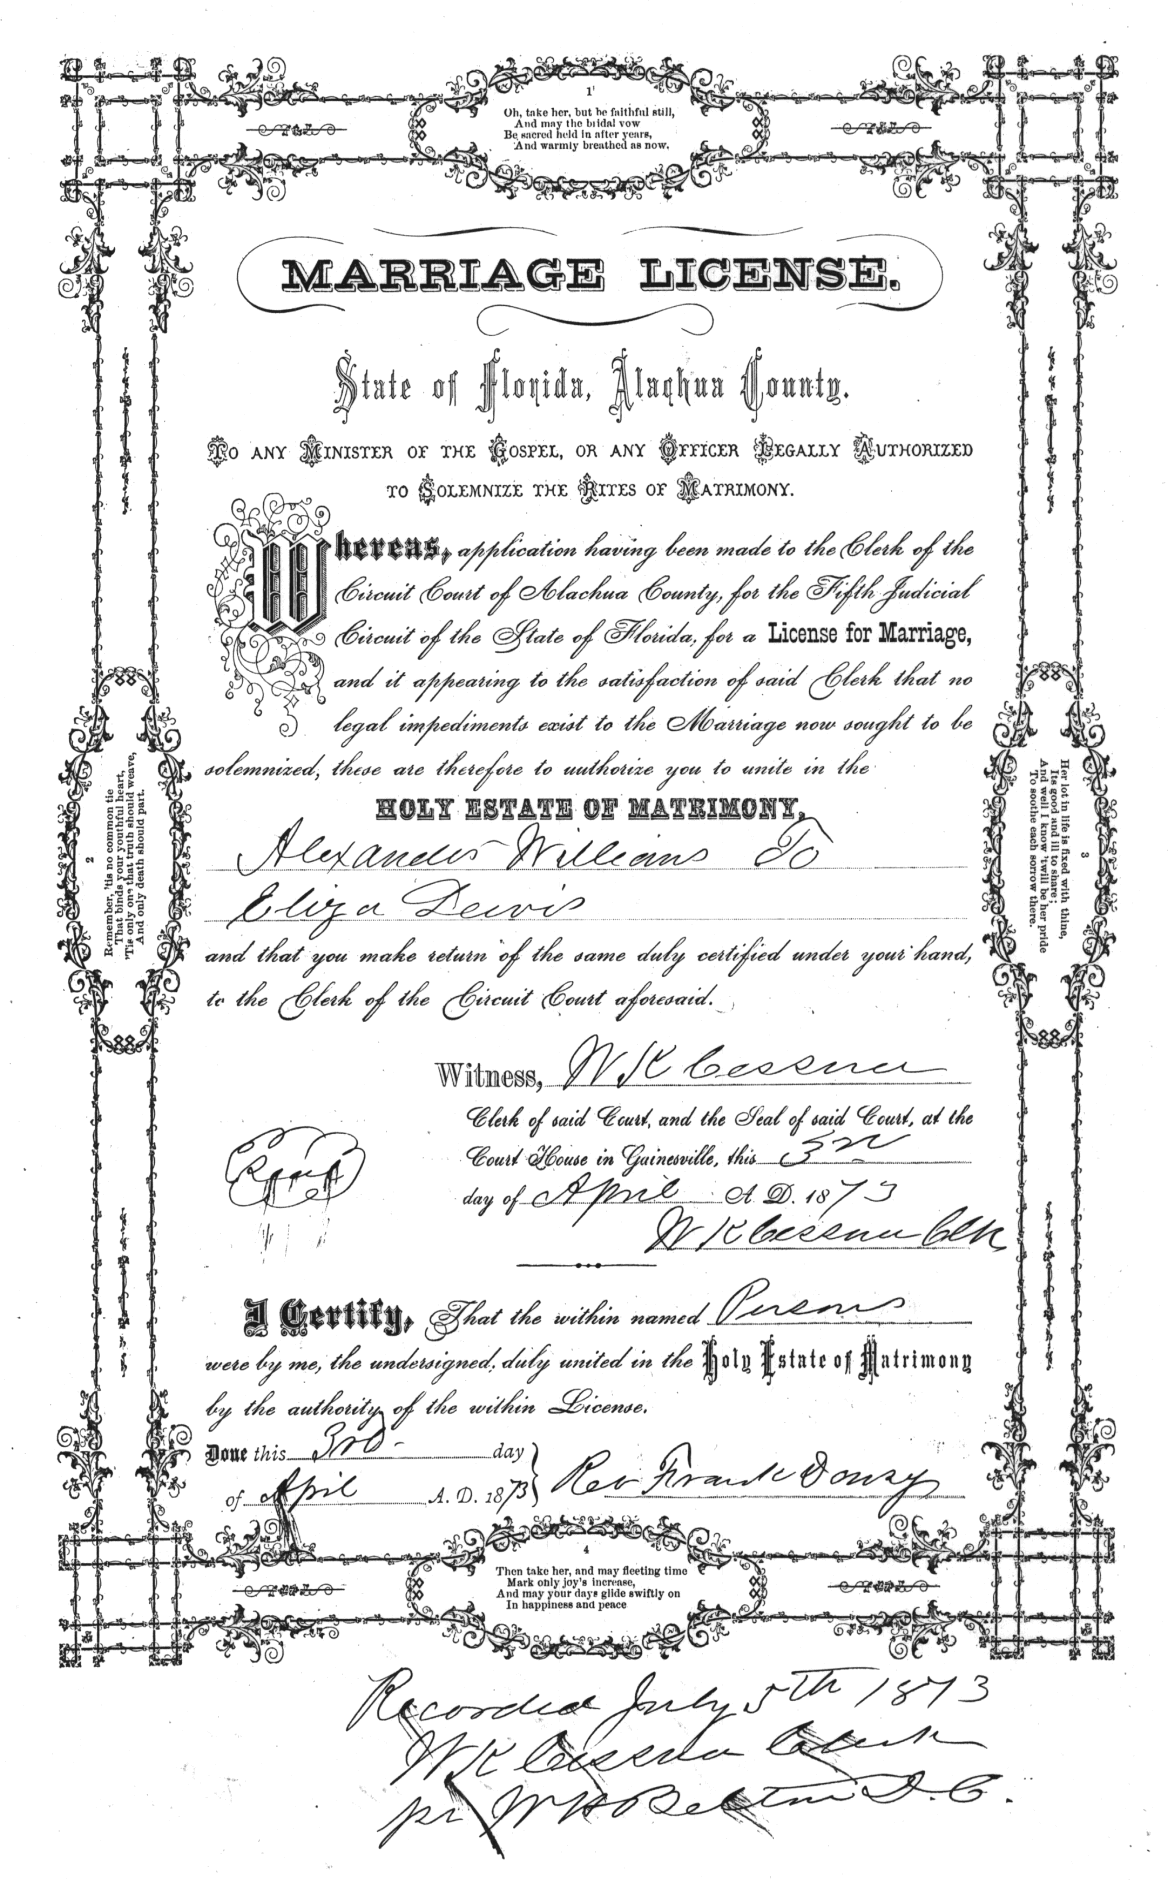 1
Oh, take her, but be faithful still,
And may the bridal vow
Be sacred held in after years,
And warmly breathed as now.
MARRIAGE LICENSE.
State of Florida, Alachua County.
TO ANY MINISTER OF THE GOSPEL, OR ANY OFFICER LEGALLY AUTHORIZED
TO SOLEMNIZE THE RITES OF MATRIMONY.
Whereas, application having been made to the Clerk of the
Circuit Court of Alachua County, for the Fifth Judicial
Circuit of the State of Florida, for a License for Marriage,
and it appearing to the satisfaction of said Clerk that no
legal impediments exist to the Marriage now sought to be
solemnized, these are therefore to authorize you to unite in the
HOLY ESTATE OF MATRIMONY,
Alexander Williams To
Eliza Lewis
and that you make return of the same duly certified under your hand,
to the Clerk of the Circuit Court aforesaid.
2
Remember, 'tis no common tie
That binds your youthful heart,
'Tis only one that truth should weave,
And only death should part.
3
Her lot in life is fixed with thine,
Its good and ill to share;
And well I know 'twill be her pride
To soothe each sorrow there.
Witness, W K Cessna
Clerk of said Court, and the Seal of said Court, at the
Court House in Gainesville, this 3rd
day of April A. D. 1873
W K Cessna Clk
I Certify, That the within named Persons
were by me, the undersigned, duly united in the Holy Estate of Matrimony
by the authority of the within License.
Done this 3rd day
of April A. D. 1873 Rev Frank
4
Then take her, and may fleeting time
Mark only joy's increase,
And may your days glide swiftly on
In happiness and peace
Recorded July 5th 1873
W K Cessna Clerk
pr W H Belton D. C.